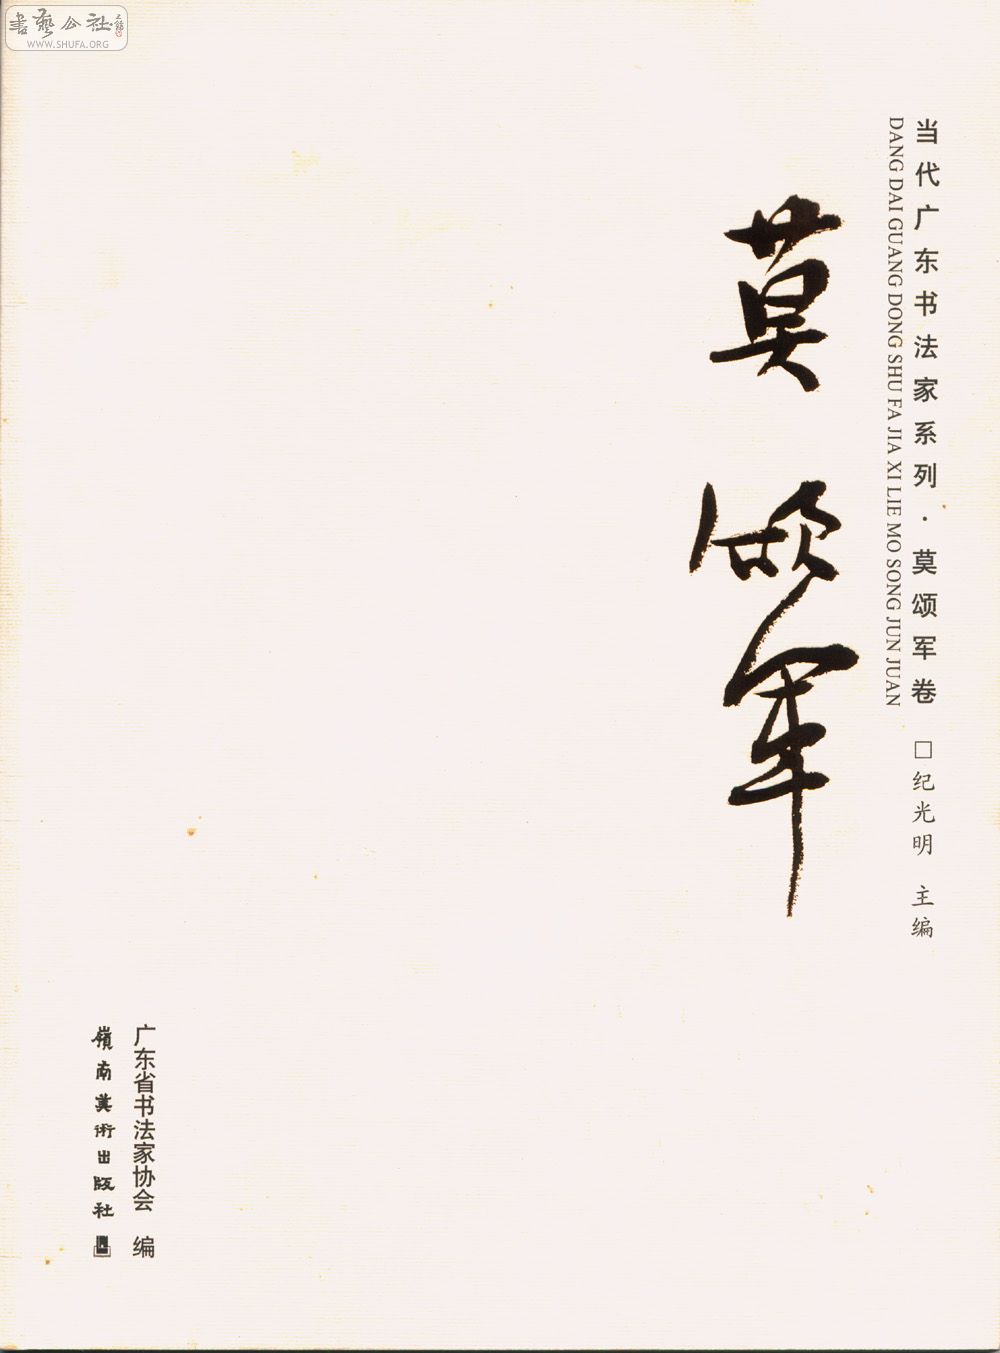 書藝公社
WWW.SHUFA.ORG
当代广东书法家系列·莫颂军卷 □纪光明 主编
DANG DAI GUANG DONG SHU FA JIA XI LIE MO SONG JUN JUAN
莫颂军
广东省书法家协会 编
嶺南美術出版社